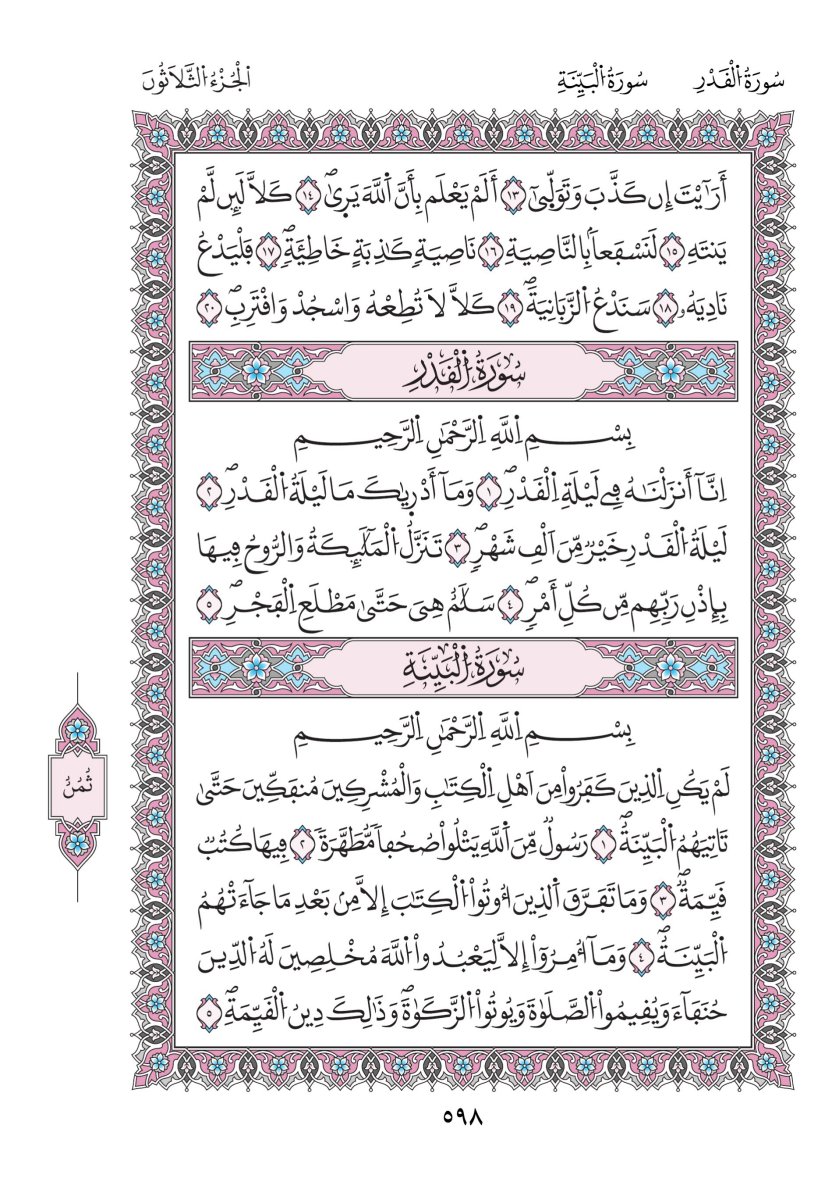 سُورَةُ اُ۬لْقَدْرِ سُورَةُ اُ۬لْبَيِّنَةِ اَ۬لْجُزْءُ اُ۬لثَّلَاثُونَ
أَرَٰٓيْتَ إِن كَذَّبَ وَتَوَلّ۪ىٰٓ ١٣ أَلَمْ يَعْلَم بِأَنَّ اَ۬للَّهَ يَر۪ىٰۖ ١٤ كَلَّا لَئِن لَّمْ
يَنتَهِ ١٥ لَنَسْفَعاَۢ بِالنَّاصِيَةِ ١٦ نَاصِيَةٖ كَٰذِبَةٍ خَاطِئَةٖۖ ١٧ فَلْيَدْعُ
نَادِيَهُۥ ١٨ سَنَدْعُ اُ۬لزَّبَانِيَةَۖ ١٩ كَلَّا لَا تُطِعْهُ وَاسْجُدْ وَاقْتَرِبۖ ٢٠
سُورَةُ اُ۬لْقَدْرِ
بِسْمِ اِ۬للَّهِ اِ۬لرَّحْمَٰنِ اِ۬لرَّحِيمِ
اِنَّآ أَنزَلْنَٰهُ فِے لَيْلَةِ اِ۬لْقَدْرِۖ ١ وَمَآ أَدْر۪ىٰكَ مَا لَيْلَةُ اُ۬لْقَدْرِۖ ٢
لَيْلَةُ اُ۬لْقَدْرِ خَيْرٞ مِّنَ اَلْفِ شَهْرٖۖ ٣ تَنَزَّلُ اُ۬لْمَلَٰٓئِكَةُ وَالرُّوحُ فِيهَا
بِإِذْنِ رَبِّهِم مِّن كُلِّ أَمْرٖۖ ٤ سَلَٰمٌ هِيَ حَتَّىٰ مَطْلَعِ اِ۬لْفَجْرِۖ ٥
سُورَةُ اُ۬لْبَيِّنَةِ
بِسْمِ اِ۬للَّهِ اِ۬لرَّحْمَٰنِ اِ۬لرَّحِيمِ
لَمْ يَكُنِ اِ۬لذِينَ كَفَرُواْ مِنَ اَهْلِ اِ۬لْكِتَٰبِ وَالْمُشْرِكِينَ مُنفَكِّينَ حَتَّىٰ
تَاتِيَهُمُ اُ۬لْبَيِّنَةُۖ ١ رَسُولٞ مِّنَ اَ۬للَّهِ يَتْلُواْ صُحُفاٗ مُّطَهَّرَةٗ ٢ فِيهَا كُتُبٞ
قَيِّمَةٞۖ ٣ وَمَا تَفَرَّقَ اَ۬لذِينَ أُوتُواْ اُ۬لْكِتَٰبَ إِلَّا مِنۢ بَعْدِ مَا جَآءَتْهُمُ
اُ۬لْبَيِّنَةُۖ ٤ وَمَآ أُمِرُوٓاْ إِلَّا لِيَعْبُدُواْ اُ۬للَّهَ مُخْلِصِينَ لَهُ اُ۬لدِّينَ
حُنَفَآءَ وَيُقِيمُواْ اُ۬لصَّلَوٰةَ وَيُوتُواْ اُ۬لزَّكَوٰةَۖ وَذَٰلِكَ دِينُ اُ۬لْقَيِّمَةِۖ ٥
ثُمُنُ
٥٩٨